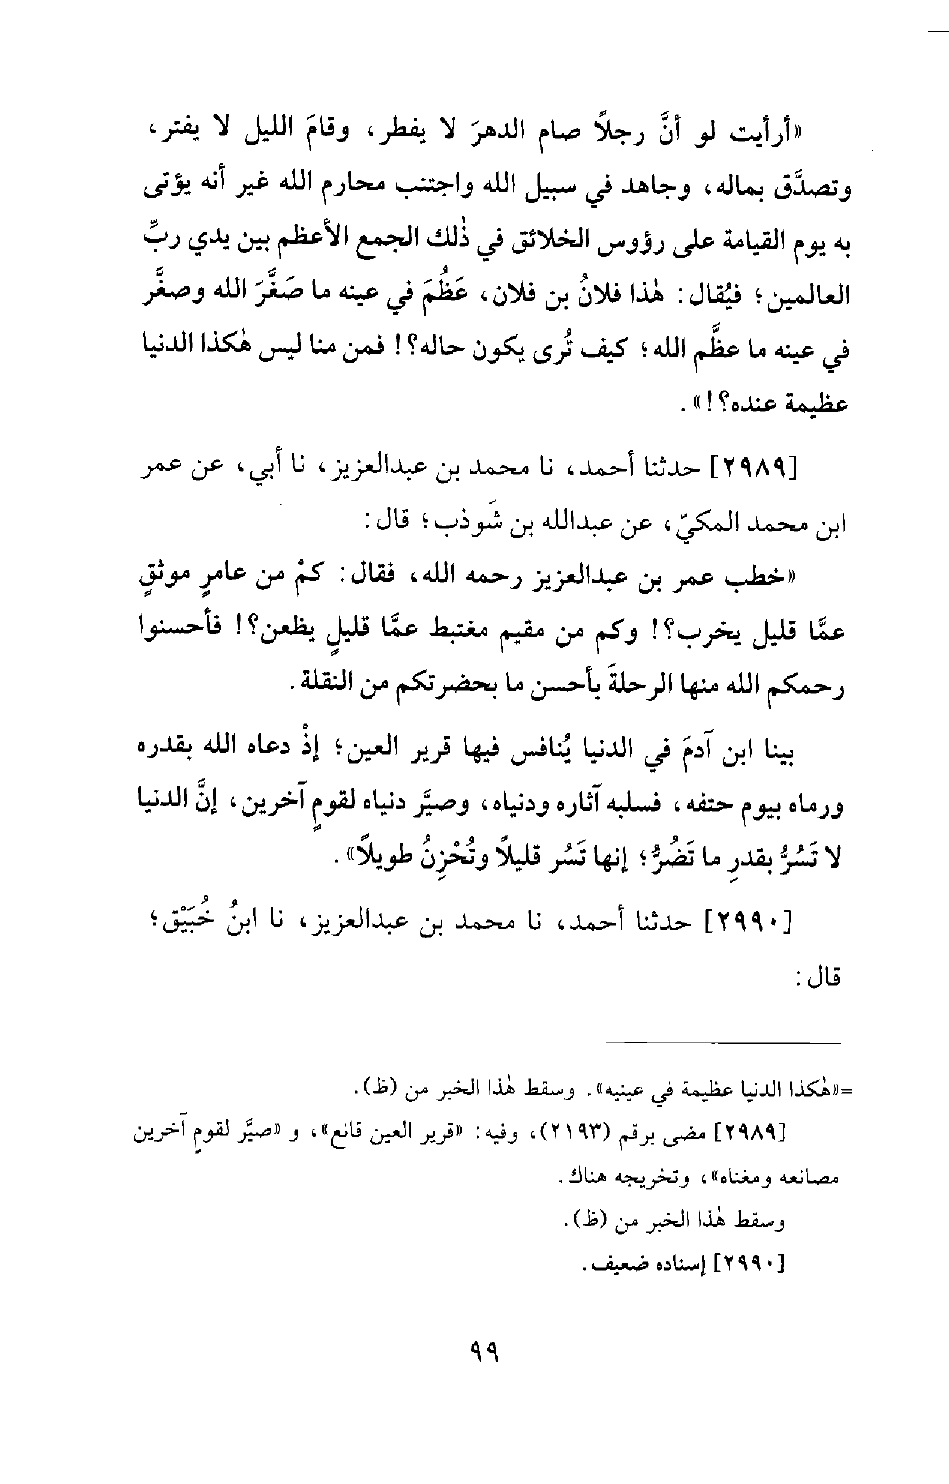 «أرأيت لو أنَّ رجلاً صام الدهرَ لا يفطر، وقامَ الليل لا يفتر،
وتصدَّق بماله، وجاهد في سبيل الله واجتنب محارم الله غير أنه يؤتى
به يوم القيامة على رؤوس الخلائق في ذٰلك الجمع الأعظم بين يدي ربِّ
العالمين؛ فيُقال: هٰذا فلانُ بن فلان، عَظُمَ في عينه ما صَغَّرَ الله وصغَّر
في عينه ما عظَّم الله؛ كيف تُرى يكون حاله؟! فمن منا ليس هٰكذا الدنيا
عظيمة عنده؟!».
[٢٩٨٩] حدثنا أحمد، نا محمد بن عبدالعزيز، نا أبي، عن عمر
ابن محمد المكيّ، عن عبدالله بن شَوذب؛ قال:
«خطب عمر بن عبدالعزيز رحمه الله، فقال: كمْ من عامرٍ موثقٍ
عمَّا قليل يخرب؟! وكم من مقيم مغتبط عمَّا قليلٍ يظعن؟! فأحسنوا
رحمكم الله منها الرحلةَ بأحسن ما بحضرتكم من النقلة.
بينا ابن آدمَ في الدنيا يُنافس فيها قرير العين؛ إذْ دعاه الله بقدره
ورماه بيوم حتفه، فسلبه آثاره ودنياه، وصيَّر دنياه لقومٍ آخرين، إنَّ الدنيا
لا تَسُرُّ بقدرِ ما تَضُرُّ؛ إنها تَسُر قليلاً وتُحْزِنُ طويلاً».
[٢٩٩٠] حدثنا أحمد، نا محمد بن عبدالعزيز، نا ابنُ خُبَيْق؛
قال:
=«هٰكذا الدنيا عظيمة في عينيه». وسقط هٰذا الخبر من (ظ).
[٢٩٨٩] مضى برقم (٢١٩٣)، وفيه: «قرير العين قانع»، و«صيَّر لقومٍ آخرين
مصانعه ومغناه»، وتخريجه هناك.
وسقط هٰذا الخبر من (ظ).
[٢٩٩٠] إسناده ضعيف.
٩٩